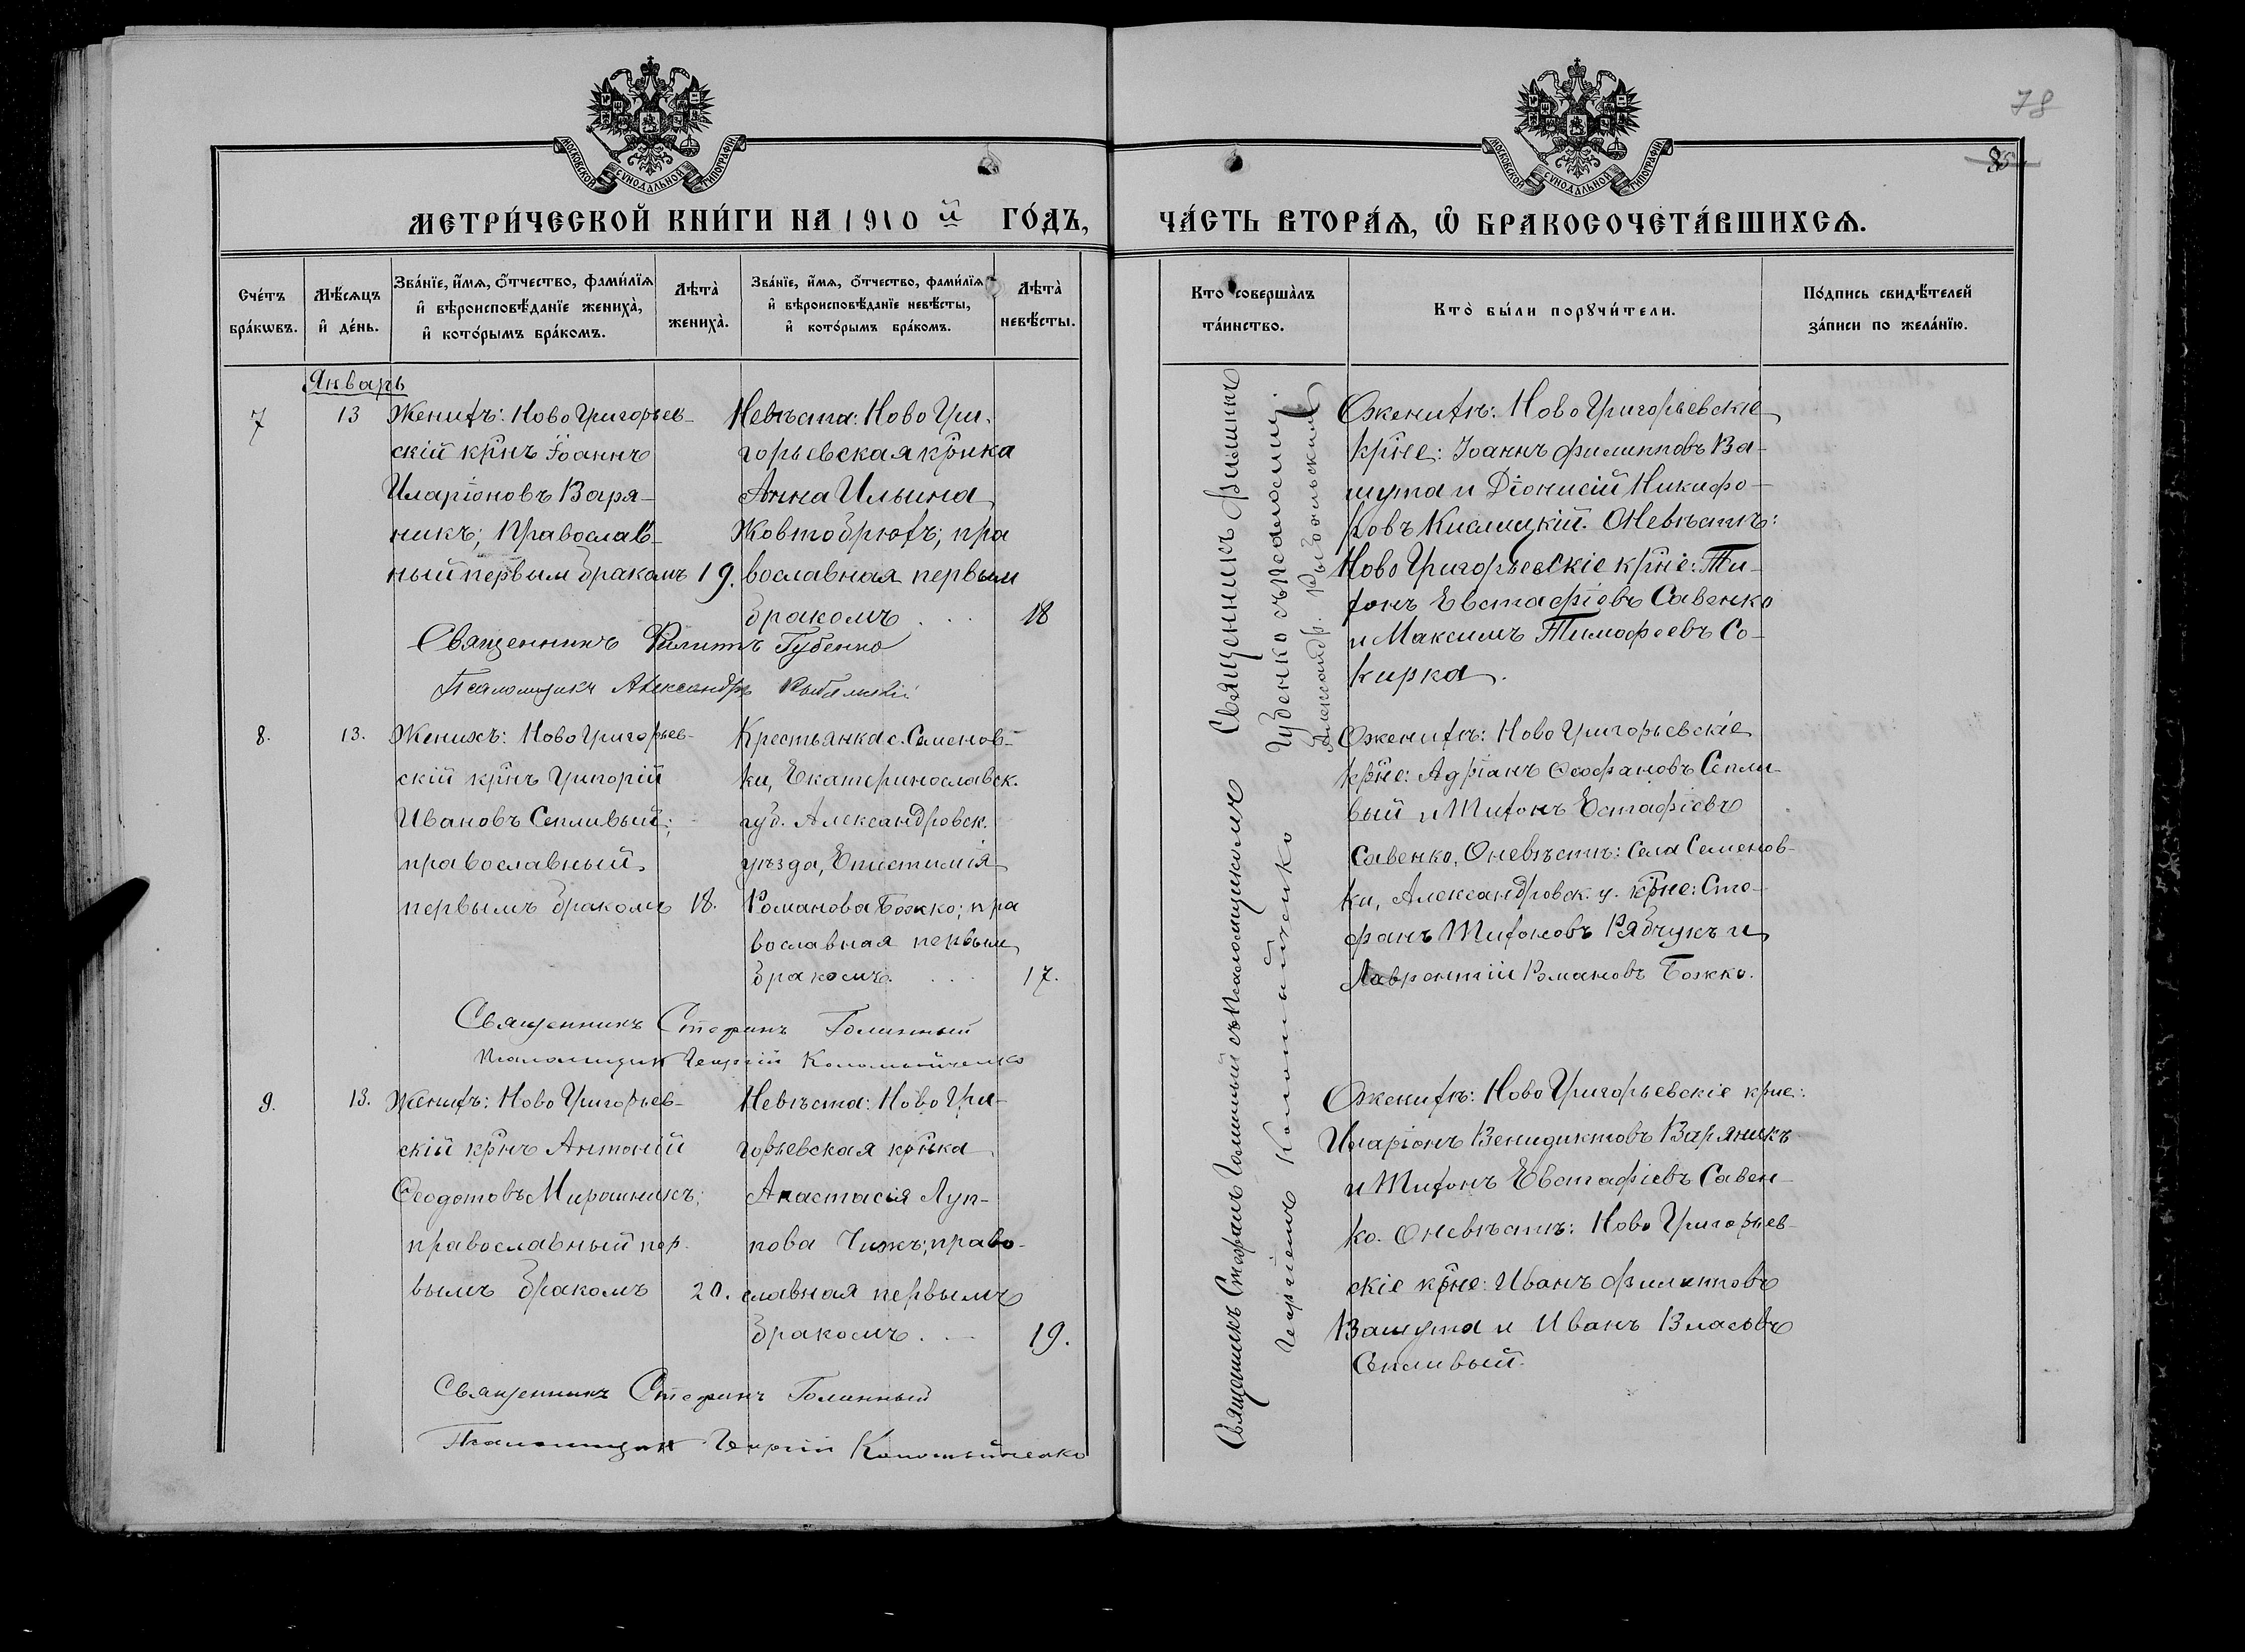 78
МОСКОВСКОЙ СУНОДАЛЬНОЙ ТИПОГРАФІИ
МЕТРИ́ЧЕСКОЙ КНИ́ГИ НА 1910 й ГО́ДЪ,
Сче́тъ бра́кѡвъ.
Мѣ́сяцъ и҆ де́нь.
Зва́нїе, и҆́мя, ѻ҆́тчество, фами́лїя
и҆ вѣроисповѣ́данїе жениха̀,
и҆ кото́рымъ бра́комъ.
Лѣта̀ жениха̀.
Зва́нїе, и҆́мя, ѻ҆́тчество, фами́лїя
и҆ вѣроисповѣ́данїе невѣ́сты,
и҆ кото́рымъ бра́комъ.
Лѣта̀ невѣ́сты.
Январь
7
13
Женихъ: Ново Григорьев-
скій кр̃нъ Іоаннъ
Иларіоновъ Варя-
никъ; Православ-
ный первым браком 19.
Невѣста: Ново Гри-
горьевская кр̃нка
Анна Ильина
Жовтобрюхъ; пра
вославная первым
бракомъ . . . 18
Священникъ Филиппъ Губенко
Псаломщикъ Александръ Рыбальскій
8.
13.
Женихъ: Ново Григорьев-
скій кр̃нъ Григорій
Ивановъ Сепливый;
православный,
первымъ бракомъ 18.
Крестьянка с. Семенов-
ки, Екатеринославск.
губ. Александровск.
уѣзда, Епистимія
Романова Божко; пра
вославная первым
бракомъ. . . 17.
Священникъ Стефанъ Голинный
Псаломщикъ Георгій Коломыйченко
9.
13.
Женихъ: Ново Григорьев-
скій кр̃нъ Антоній
Ѳеодотовъ Мирошникъ;
православный пер-
вымъ бракомъ 20.
Невѣста: Ново Гри-
горьевская кр̃нка
Анастасія Луп-
пова Чижъ; право-
славная первымъ
бракомъ. . 19.
Священникъ Стефанъ Голинный
Псаломщикъ Георгій Коломыйченко
МОСКОВСКОЙ СУНОДАЛЬНОЙ ТИПОГРАФІИ
ЧА́СТЬ ВТОРА́Я, Ѽ БРАКОСОЧЕТА́ВШИХСЯ.
Кто̀ соверша́лъ та́инство.
Кто̀ бы́ли порꙋчи́тели.
По́дпись свидѣ́телей
за́писи по жела́нїю.
Священникъ Филиппъ
Губенко съ псаломщ.
Александр. Рыбальским
Священникъ Стефанъ Голинный съ псаломщикомъ
Георгіемъ Коломыйченко
О женихѣ: Ново Григорьевскіе
кр̃не: Іоаннъ Филипповъ Ва-
шута и Діонисій Никифо-
ровъ Кислицкій. О невѣстѣ:
Ново Григорьевскіе кр̃не: Ти-
хонъ Евстафіевъ Савенко
и Максимъ Тимофеевъ Со-
кирка.
О женихѣ: Ново Григорьевскіе
кр̃не: Адріанъ Ѳеофановъ Сепли-
вый и Тихонъ Естафіевъ
Савенко, О невѣстѣ: Села Семенов-
ки, Александровск. у. кр̃не: Сте-
фанъ Тихоновъ Рябчукъ и
Лаврентій Романовъ Божко.
О женихѣ: Ново Григорьевскіе кр̃не:
Иларіонъ Венидиктовъ Варяникъ
и Тихонъ Евстафіевъ Савен-
ко. О невѣстѣ: Ново Григорьев-
скіе кр̃не: Иванъ Филипповъ
Вашута и Иванъ Власовъ
Сепливый.